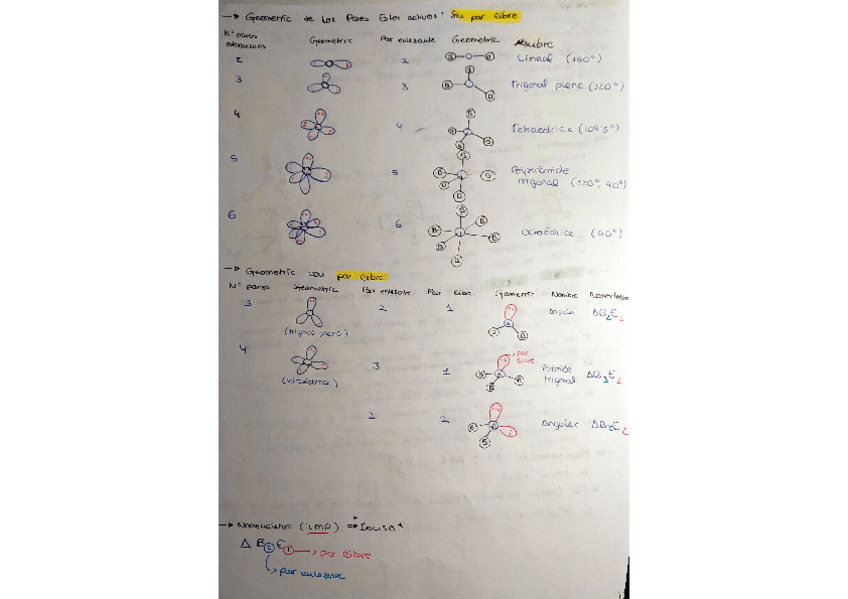 → Geometric de Los Pares Elec activos: Sin par libre
Nº pares Geometric Par enlazante Geometric Nombre
2 2 Lineal (180°)
3 3 Trigonal plana (120°)
4 4 Tetraédrica (109'5°)
5 5 Bipirámide trigonal (120°, 90°)
6 6 Octaédrica (90°)
→ Geometric con par libre
Nº pares Geometric Par enlazante Par libre Geometric Nombre
3 2 1 Angular AB2E1
(trigonal plana)
par libre
4 3 1 Pirámide trigonal AB3E1
2 2 Angular AB2E2
→ Nomenclatura (IMP) ⇒
A B2E1 → par libre
↳ par enlazante